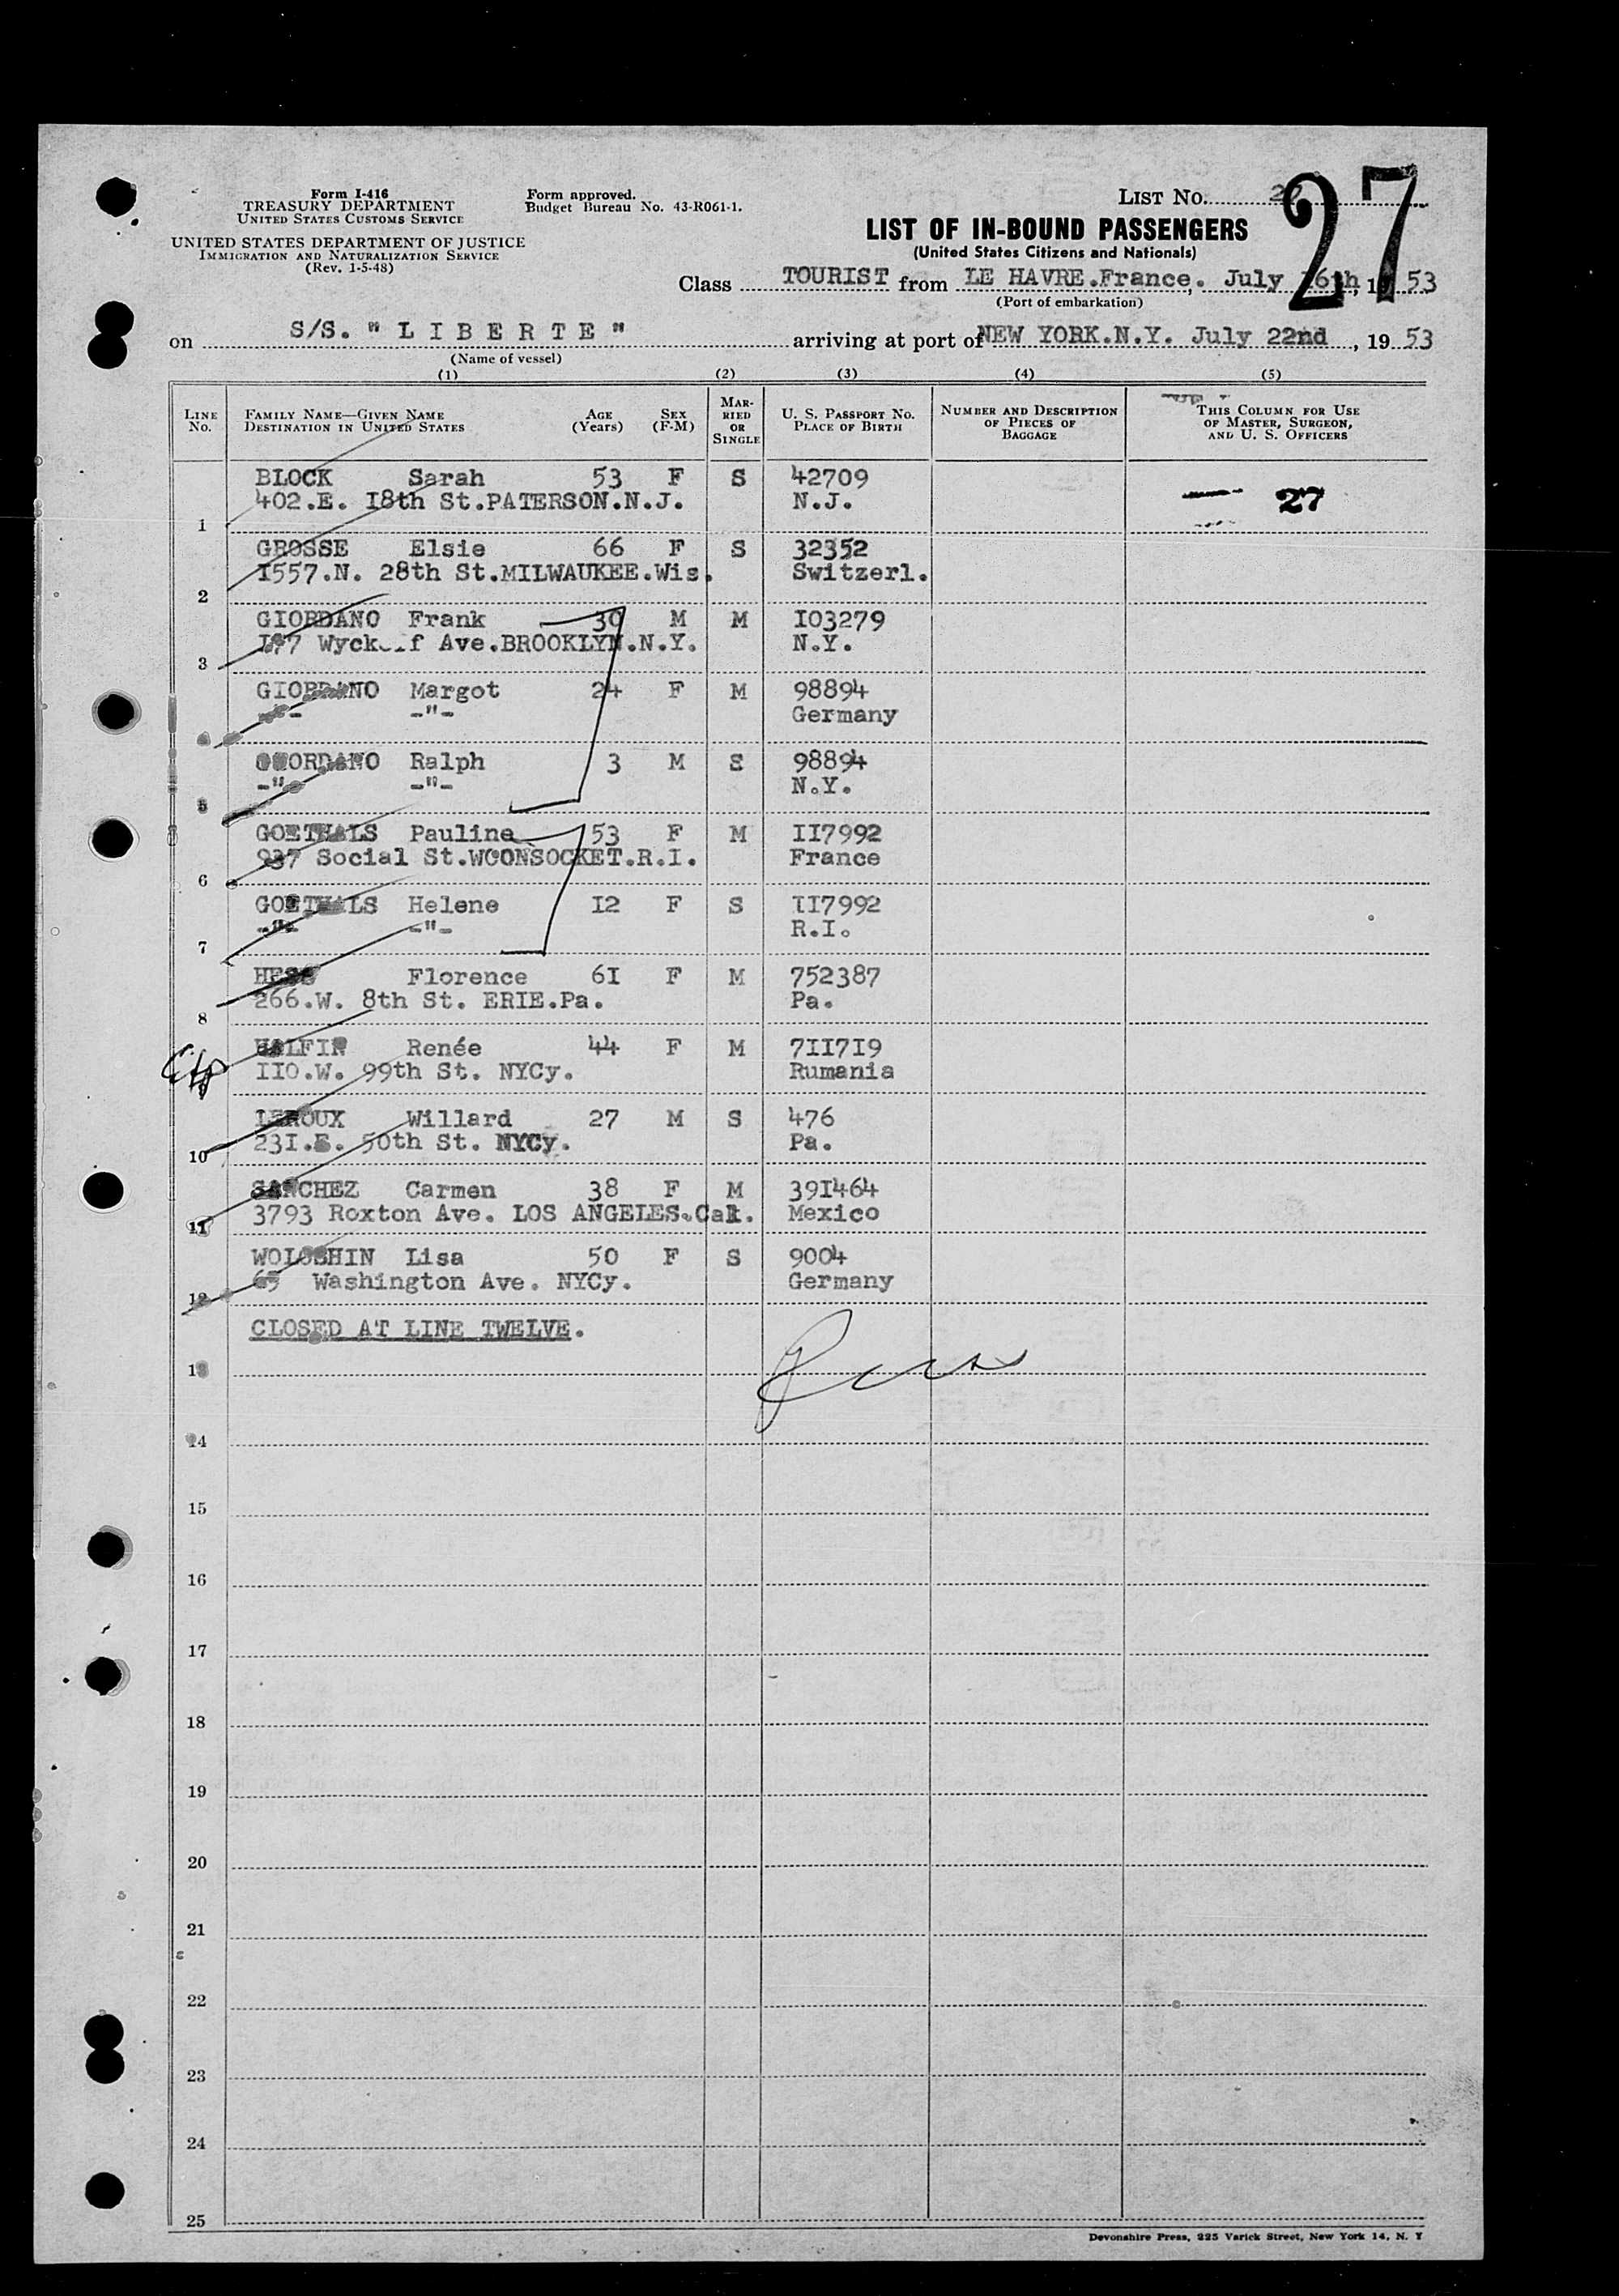 Form I-416
TREASURY DEPARTMENT
UNITED STATES CUSTOMS SERVICE
UNITED STATES DEPARTMENT OF JUSTICE
IMMIGRATION AND NATURALIZATION SERVICE
(Rev. 1-5-48)
Form approved.
Budget Bureau No. 43-R061-1.
LIST No.
27
LIST OF IN-BOUND PASSENGERS
(United States Citizens and Nationals)
Class TOURIST from LE HAVRE.France. July 16th, 19 53
(Port of embarkation)
on S/S. "LIBERTE" arriving at port of NEW YORK.N.Y. July 22nd, 19 53
(Name of vessel)
(1) (2) (3) (4) (5)
LINE No. FAMILY NAME—GIVEN NAME DESTINATION IN UNITED STATES AGE (Years) SEX (F-M) MARRIED OR SINGLE U. S. PASSPORT No. PLACE OF BIRTH NUMBER AND DESCRIPTION OF PIECES OF BAGGAGE THIS COLUMN FOR USE OF MASTER, SURGEON, AND U. S. OFFICERS
BLOCK Sarah 53 F S 42709
1 402.E. I8th St.PATERSON.N.J. N.J. 27
GROSSE Elsie 66 F S 32352
2 I557.N. 28th St.MILWAUKEE.Wis. Switzerl.
GIORDANO Frank 30 M M I03279
3 Ave.BROOKLYN.N.Y. N.Y.
GIORDANO Margot 24 F M 98894
4 -"- -"- Germany
GIORDANO Ralph 3 M S 98894
5 -"- -"- N.Y.
GOETHALS Pauline 53 F M II7992
6 937 Social St.WOONSOCKET.R.I. France
GOETHALS Helene I2 F S II7992
7 -"- -"- R.I.
HESS Florence 6I F M 752387
8 266.W. 8th St. ERIE.Pa. Pa.
HALFIN Renée 44 F M 7II7I9
9 IIO.W. 99th St. NYCy. Rumania
LEROUX Willard 27 M S 476
10 23I.E. 50th St. NYCy. Pa.
SANCHEZ Carmen 38 F M 39I464
11 3793 Roxton Ave. LOS ANGELES.Cal. Mexico
WOLOSHIN Lisa 50 F S 9004
12 65 Washington Ave. NYCy. Germany
CLOSED AT LINE TWELVE.
13
14
15
16
17
18
19
20
21
22
23
24
25
Devonshire Press, 225 Varick Street, New York 14, N. Y